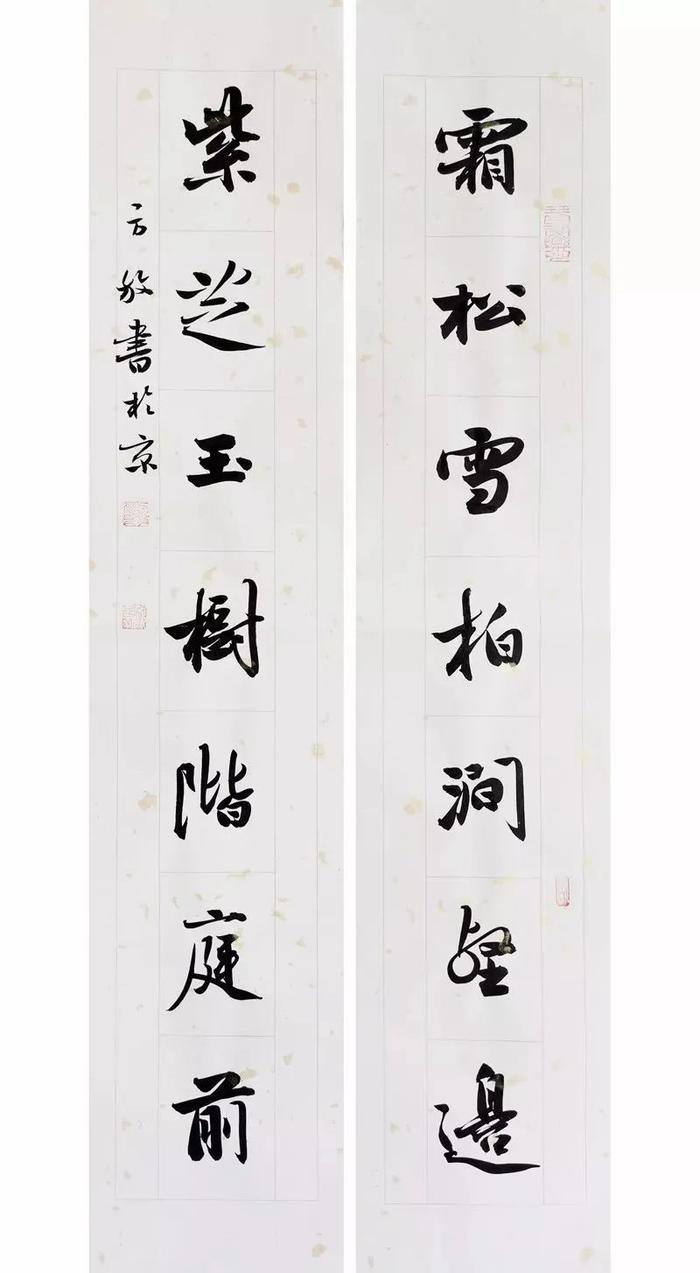 霜松雪柏澗壑邊
紫芝玉樹階庭前
方放書於京